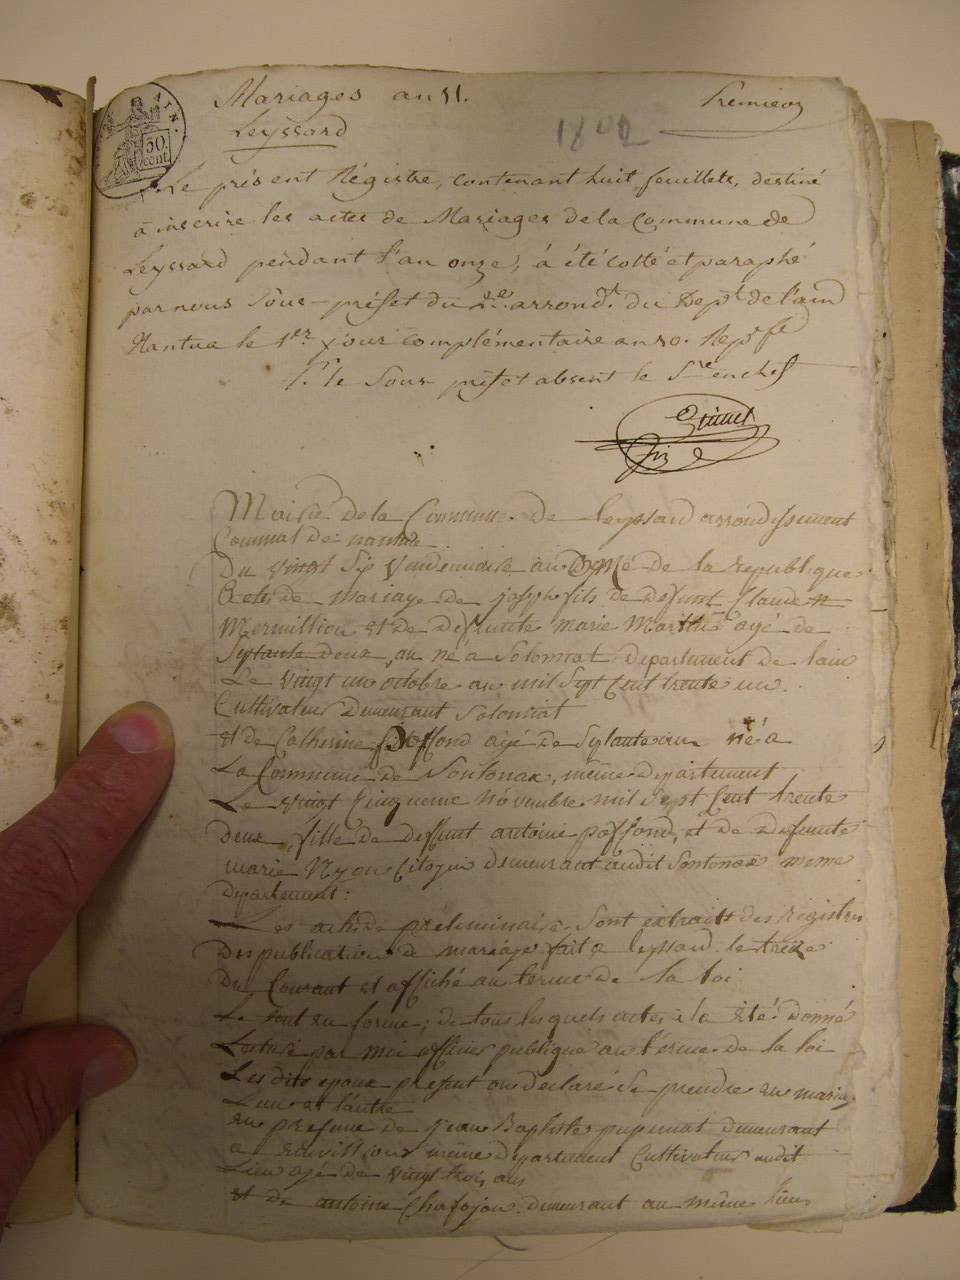 Mariages an 11. Premier
Leyssard
1802
AIN.
50
cent.
Le présent Régistre, contenant huit feuillets, destiné
à inscrire les actes de Mariages de la Commune de
Leyssard pendant l'an onze, à été cotté et paraphé
par nous Sous-préfet du 2e. arrondt. du Dept. de l'ain
Nantua le 1er. jour complémentaire an 10. Rep. fse
Pr. le Sous préfet absent le Sre en chef
Mairie de la Commune de Leyssard arrondissement
Communal de nantua
Du vingt Six Vendemiaire an Onze de la republique
Acte de mariage de joseph fils de deffunt Claude
Mermillion et de deffunte marie Marthe agé de
Septante deux an né a Solomiat departement de lain
Le vingt un octobre an mil Sept Cent trente un.
Cultivateur demeurant Solomiat
et de Catherine poffond agé de Septante un né a
La Commune de Sontonax, même departement
Le vingt Cinquieme Novembre mil Sept Cent trente
deux fille de deffunt antoine poffond, et de defunte
marie Nyon Citoyen demeurant audit Sontonax meme
departement:
Les actes de préleminaire Sont extrait des registres
des publication de mariage fait a leyssard le treize
du Courant et affiché au terme de la loi
Le tout en forme; de tous lesquels actes il a eté donné
Lecture par moi officier publique au terme de la loi
Les dits epoux present on declaré Se prendre en mariage
Lun et lautre
en presence de jean Baptiste demeurant
a même departement Cultivateur audit
Lieu agé de vingt trois ans
et de antoine Chafajon demeurant au même lieu